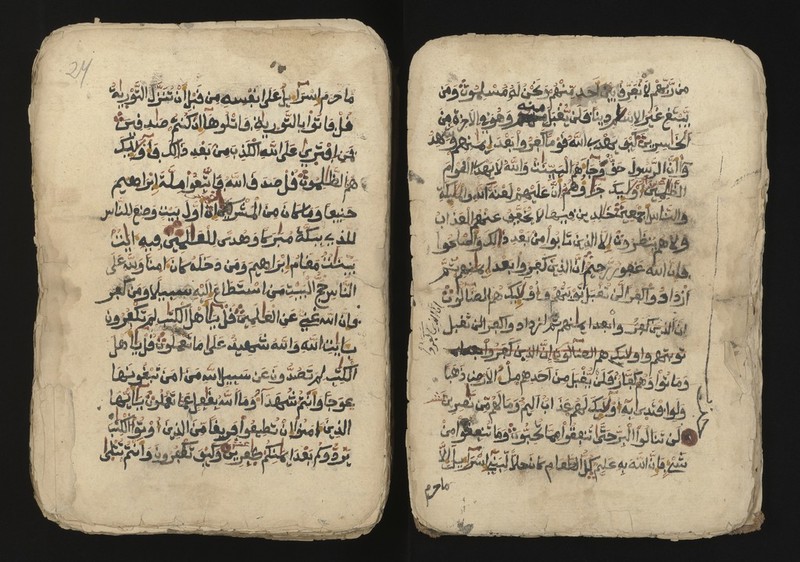 من ربهم لا نفرق بين احد منهم ونحن له مسلمون ومن
يبتغ غير الاسلام دينا فلن يقبل منه وهو في الاخرة من
الخاسرين كيف يهدي الله قوما كفروا بعد ايمنهم وشهد
وا ان الرسول حق وجاءهم البينت والله لا يهدي القوم
الظلمين اوليك جزاؤهم ان عليهم لعنة الله والمليكة
والناس اجمعين خلدين فيها لا يخفف عنهم العذاب
ولا هم ينظرون الا الذين تابوا من بعد ذالك واصلحوا
فان الله غفور رحيم ان الذين كفروا بعد ايمنهم ثم
ازدادوا كفرا لن تقبل توبتهم واوليك هم الضالون
ان الذين كفروا بعد ايمنهم ثم ازدادوا كفرا لن تقبل
توبتهم واوليك هم الضالون ان الذين كفروا
وماتوا وهم كفار فلن يقبل من احدهم ملء الارض ذهبا
ولو افتدى به اوليك لهم عذاب اليم وما لهم من نصرين
لن تنالوا البر حتى تنفقوا مما تحبون وما تنفقوا من
شيء فان الله به عليم كل الطعام كان حلا لبني اسرايل الا
ما حرم
24
ما حرم اسرايل على نفسه من قبل ان تنزل التورية
قل فاتوا بالتورية فاتلوها ان كنتم صدقين
فمن افترى على الله الكذب من بعد ذالك فاوليك
هم الظلمون قل صدق الله فاتبعوا ملة ابراهيم
حنيفا وما كان من المشركين ان اول بيت وضع للناس
للذي ببكة مبركا وهدى للعلمين فيه ايت
بينت مقام ابراهيم ومن دخله كان امنا ولله على
الناس حج البيت من استطاع اليه سبيلا ومن كفر
فان الله غني عن العلمين قل ياهل الكتب لم تكفرون
بايت الله والله شهيد على ما تعملون قل ياهل
الكتب لم تصدون عن سبيل الله من امن تبغونها
عوجا وانتم شهداء وما الله بغفل عما تعملون يايها
الذين امنوا ان تطيعوا فريقا من الذين اوتوا الكتب
يردوكم بعد ايمنكم كفرين وكيف تكفرون وانتم تتلى